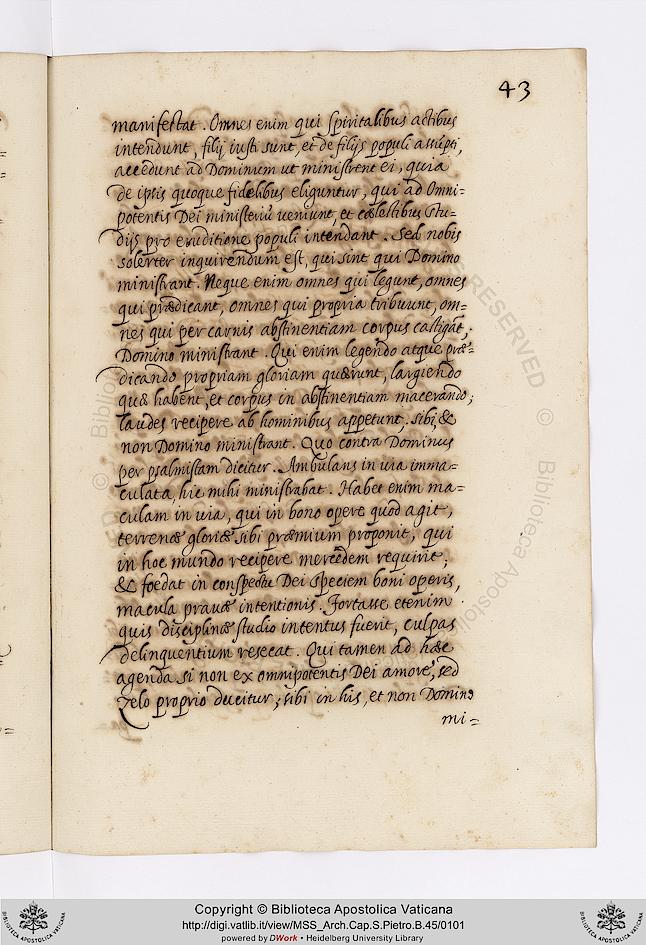 43
manifestat. Omnes enim qui spiritalibus actibus
intendunt, filij iusti sunt, et de filijs populi assūpti,
accedunt ad Dominum ut ministrent ei, quia
de ipsis quoque fidelibus eliguntur, qui ad Omni=
potentis Dei ministeriū ueniunt, et cælestibus stu=
dijs pro eruditione populi intendant. Sed nobis
solerter inquirendum est, qui sint qui Domino
ministrant. Neque enim omnes qui legunt, omnes
qui prædicant, omnes qui propria tribuunt, om=
nes qui per carnis abstinentiam corpus castigāt,
Domino ministrant. Qui enim legendo atque præ=
dicando propriam gloriam quærunt, largiendo
quæ habent, et corpus in abstinentiam macerando;
laudes recipere ab hominibus appetunt, sibi, &
non Domino ministrant. Quo contra Dominus
per psalmistam dicitur. Ambulans in uia imma=
culata, hic mihi ministrabat. Habet enim ma=
culam in uia, qui in bono opere quod agit,
terrenæ gloriæ sibi præmium proponit, qui
in hoc mundo recipere mercedem requirit;
& foedat in conspectu Dei speciem boni operis,
macula prauæ intentionis. Fortasse etenim
quis disciplinæ studio intentus fuerit, culpas
delinquentium resecat. Qui tamen ad hæc
agenda si non ex omnipotentis Dei amore, sed
zelo proprio ducitur; sibi in his, et non Domino
mi=
Copyright © Biblioteca Apostolica Vaticana
http://digi.vatlib.it/view/MSS_Arch.Cap.S.Pietro.B.45/0101
powered by DWork • Heidelberg University Library